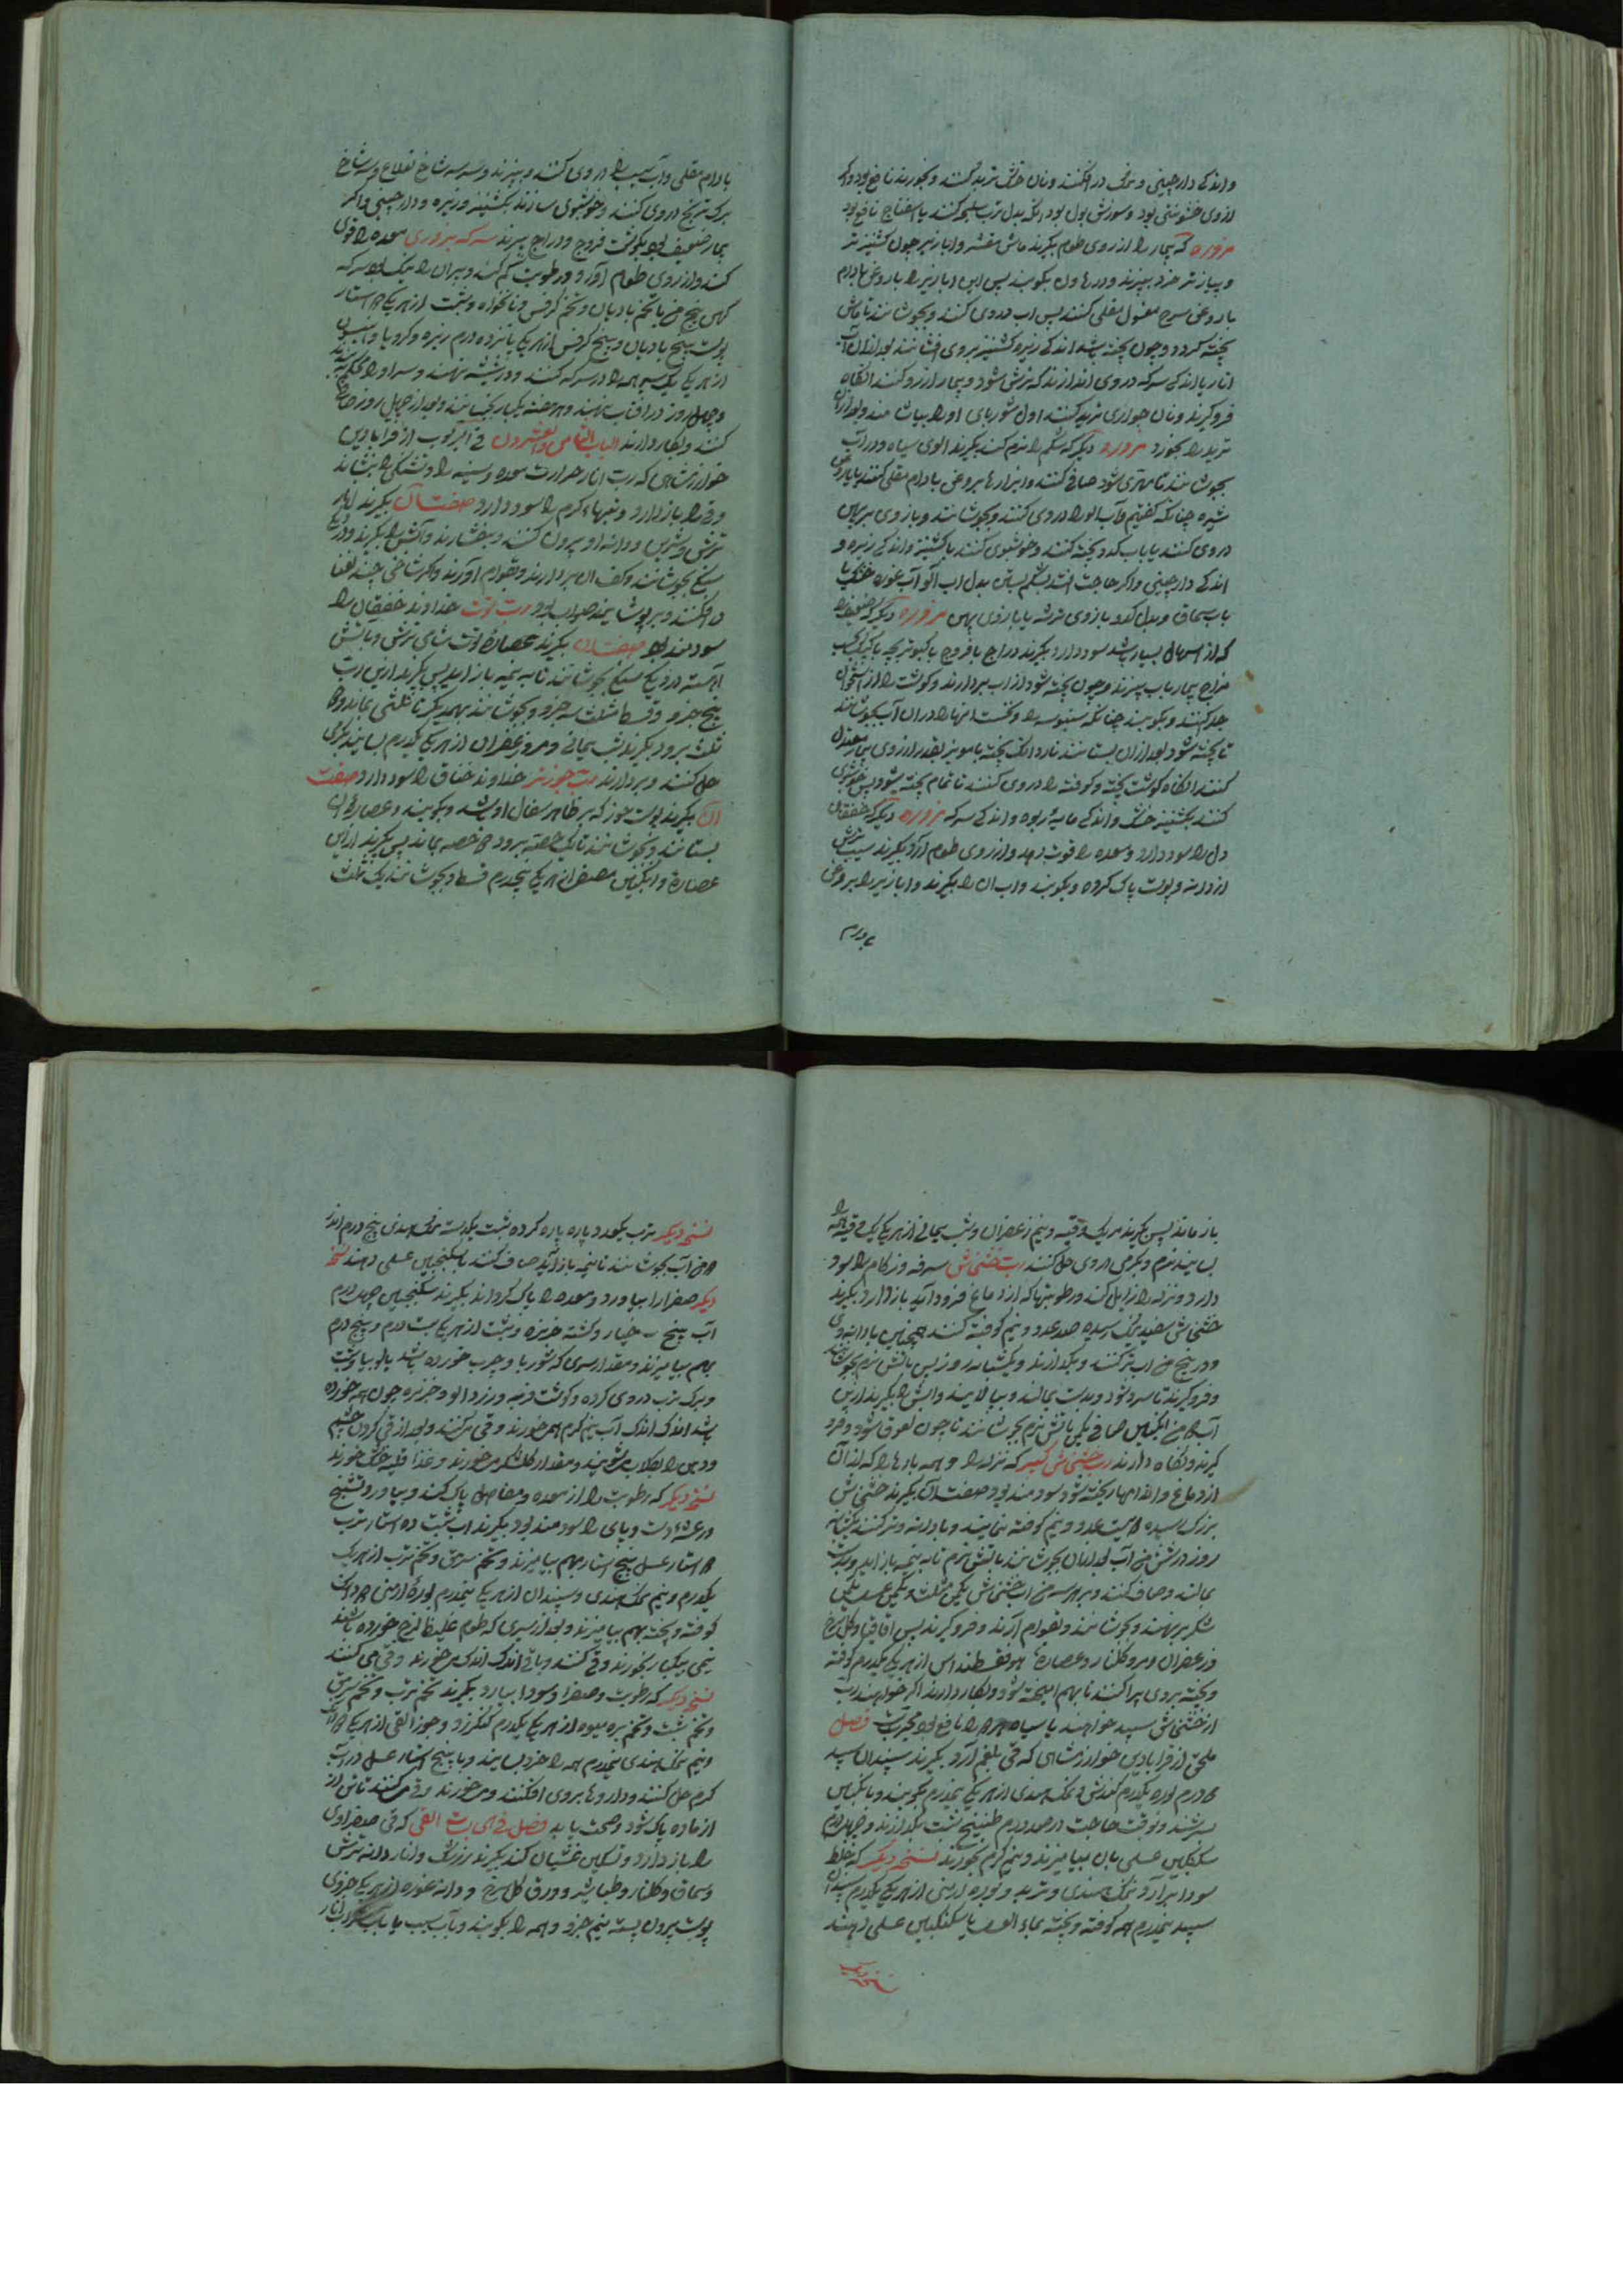 واندکی دارچینی و نمک در افکنند ونان خشک ترید کنند و بخورند نافع بود واکر
از وی خشونتی بود وسوزش بول بود انکه بدل ترب سلیحه کنند یا اسفناج نافع بود
مزوره که بیمار را ارزوی طعام بکیرند ماش مقشر وابازیر چون کشنیز تر
و پیاز تر خرد ببزند ودر هاون بکوبند پس این ابازیر را با روغن بادام
یا روغن سرح مغسول مقلی کنند پس اب دروی کنند و بجوشانند تا ماش
پخته کردد وچون پخته شد اندکی زیره وکشنیز بروی افشانند بعد ازان آب
انار یا اندکی سرکه دروی اندازند که ترش شود و بیمار ارزو کنند انکاه
فرو کیرند ونان حواری ترید کنند اول شوربای او را بیاشامند وبعد ازان
ترید را بخورد مزوره دیکر که شکم را نرم کند بکیرند الوی سیاه ودر آب
بجوشانند تا مهری شود صافی کنند وابزارها بروغن بادام مقلی کنند یا بروغن
شیره چنانکه کفتیم وآب الو را دروی کنند وبجوشانند وبازوی بریان
دروی کنند یا باب کدو پخته کنند وخوشبوی کنند بکشنیز واندکی زیره و
اندکی دارچینی واکر حاجت افتد بشکم بستن بدل اب آلو آب غوره خشک یا
باب سماق وبدل کدو بازوی ترشه یا بازوی پهن مزوره دیکر که ضعیف را
که از اسهال بسیار باشد سود دارد بکیرند دراج یا فروج یا کبوتر بچه یا کبک بحسب
مزاج بیمار باب ببزند وچون پخته شود از اب بردارند وکوشت را از استخوان
جدا کنند وبکوبند چنانکه سنبوسه را ونخست انها را دران آب بجوشانند
تا پخته شود بعد ازان بستانند ناردانک پخته با مویز بقدر ارزوی بیمار معتدل
کنند انکاه کوشت پخته وکوفته را دروی کنند تا تمام پخته شود پس خوشبوی
کنند بکشنیز خشک واندکی مایه ربوه واندکی سرکه مزوره دیکر که خفقان
دل را سود دارد ومعده را قوت دهد وارزوی طعام آرد بکیرند سیب ترش
از دانه و پوست پاک کرده وبکوبند واب ان را بکیرند وابازیر را بروغن
بادام
بادام مقلی وآب سیب را دروی کنند وببزند وسه سه شاخ نعناع وسه شاخ
برک ترنج دروی کنند وخوشبوی سازند بکشنیز وزیره ودارچینی واکر
بیمار ضعیف بود بکوشت فروج ودراج ببزند سرکه بزوری معده را قوی
کند وارزوی طعام آورد ورطوبت کم کند وپیران را نیک بود سرکه
کهن پنج من با تخم بادیان وتخم کرفس ونانخواه وشبت از هر یکی استار
پوست بیخ بادیان وبیخ کرفس از هر یکی پانزده درم زیره وکرویا وانیسون
از هر یکی یک سیر همه را در سرکه کنند ودر شیشه نهند وسر او را محکم کنند
وچهل روز در افتاب نهند وهر هفته یکبار بجنبانند وبعد از چهل روز صافی
کنند وبکار دارند الباب الثامن والعشرون فی الربوب از قرابادین
خوارزمشاهی که رب انار حرارت معده وسینه را وتشنکی را بنشاند
وقی را باز دارد وتبهاء کرم را سود دارد صفت آن بکیرند انار
ترش وشیرین ودانه او بیرون کنند وبفشارند وآبش را بکیرند ودر دیک
سنکی بجوشانند وکف ان بردارند وبقوام آورند واکر شاخی چند نعنا
در افکنند وبر پوشانند صواب بود رب توت خداوند خفقان را
سودمند بود صفت ان بکیرند عصارة توت شامی ترش وبآتش
آهسته در دیک سنکی بجوشانند تا به نیمه باز اید پس بکیرند ازین رب
پنج جزو وقسط مثلث سه جزو وبجوشانند بهم دیکر تا ثلثی بماند ودو
ثلث برود بکیرند شب یمانی ومر وزعفران از هر یکی یکدرم بسایند بکری
حل کنند وبردارند رب جوز تر خداوند خناق را سود دارد صفت
ان بکیرند پوست جوز که بر ظاهر سفال او باشد وبکوبند وعصاره ان
بستانند وبجوشانند تا یک حصه برود دو حصه بماند پس بکیرند ازین
عصارة وانکبین مصفی از هر یکی پنجدرم قسط وبجوشانند تا یک ثلث
باز ماند پس بکیرند مر یک وقیه ونیم زعفران وشب یمانی از هر یکی یک وقیه همه را
بسایند نرم وبکرمی دروی حل کنند رب خشخاش سرفه وزکام را سود
دارد ونزله را زایل کند ورطوبتها که از دماغ فرود آید باز دارد بکیرند
خشخاش سفید نیک رسیده صد عدد ونیم کوفته کنند همچنین با دانه وی
ودر پنج من اب تر کنند وبکذارند ویکشبانه روز پس باتش نرم بجوشانند
وفرو کیرند تا سرد شود وبدست بمالند وبپالایند وابش را بکیرند ازین
آب دو من انکبین صافی یکمن باتش نرم بجوشانند تا چون لعوق شود وفرو
کیرند ونکاه دارند رب خشخاش کبیر که نزله را وهمه بارها را که از آن
از دماغ واندامها ریخته شود سودمند بود صفت آن بکیرند خشخاش
بزرک رسیده دویست عدد ونیم کوفته نمایند وبا دانه وتر کنند یکشبانه
روز در شش من آب بعد ازان بجوشانند باتش نرم تا به نیمه باز اید وبدست
بمالند وصاف کنند وبر هر سه من اب خشخاش یکمن مثلث ویکمن عسل یکمن
شکر بر نهند وبجوشانند وبقوام آرند وفرو کیرند پس اقاقیا وکل سرخ
وزعفران ومر وکلنار وعصارة هوفقسطیداس از هر یکی یکدرم کوفته
وبیخته بروی پراکنند تا بهم امیخته شود وبکار دارند اکر خواهند رب
از خشخاش سپید خواهند یا سیاه هر دو را نافع بود مجربست فصل
ملحق از قرابادین خوارزمشاهی که قی بلغم آرد بکیرند سپندان سپید
دو درم بوره یکدرم کندش ونمک هندی از هر یکی نیمدرم بکوبند وبانکبین
بسرشند وبوقت حاجت در صد درم طبیخ شبت بکذارند وچهل درم
سکنکبین عسلی بان بیامیزند ونیم کرم بخورند نسخه دیکر که خلط
سودا برآرد نمک هندی وتربد وبوره ارمنی از هر یکی یکدرم سپندان
سپید نیمدرم همه کوفته وبیخته بماء العسل یا سکنکبین عسلی دهند
نسخه دیکر
نسخه دیکر ترب یکعدد پاره پاره کرده شبت یکدسته نمک هندی پنج درم اندر
دو من آب بجوشانند تا نیمه باز آید صاف کنند با سکنجبین عسلی دهند نسخه
دیکر صفرا را بیاورد ومعده را پاک کرداند بکیرند سکنجبین چهل درم
آب بیخ خیار وکشته خربزه وشبت از هر یکی بیست درم وپنج درم
بهم بیامیزند ومقدار سری که شوربا وچرب خورده باشد یا لوبیا وشبت
وبرک ترب دروی کرده وکوشت فربه وزردالو وخربزه چون همه خورده
باشد اندک اندک آب نیم کرم همی خورند وقی می کنند وبعد از قی کردن چشم
ودهن را بکلاب بشویند ومقدار کلشکر می خورند وغذا قلیه خشک خورند
نسخه دیکر که رطوبت را از معده ومفاصل پاک کند وبیاورد وتشنج
ورعشه دست وپای را سودمند بود بکیرند اب شبت ده استار ترب
دو استار عسل پنج استار بهم بیامیزند وتخم سرمق وتخم ترب از هر یک
یکدرم ونیم نمک هندی وسپندان از هر یکی نیمدرم بوره ارمنی دو دانک
کوفته وبیخته بهم بیامیزند وبعد از سیری که طعم غلیظ لزج خورده باشند
نیمی بیکبار بخورند وقی کنند وباقی اندک اندک می خورند وقی می کنند
نسخه دیکر که رطوبت وصفرا وسودا بیارد بکیرند تخم ترب وتخم سرمق
وتخم شبت وتخم بره میوه از هر یکی یکدرم کنکرزد وجوز القی از هر یکی دو دانک
ونیم نمک هندی نیمدرم همه را خرد بسایند وبا پنج استار عسل در آب
کرم حل کنند وداروها بروی افکنند ومی خورند وقی می کنند تا تن از
از ماده پاک شود وصحت یابد فصل فی حابسات القی که قی صفراوی
را باز دارد وتسکین غشیان کند بکیرند زرشک وانار دانه ترش
وسماق وکلنار وطباشیر وورق کل سرخ ودانه غوره از هر یکی جزوی
پوست بیرون پسته نیم جزو وهمه را بکوبند وبآب سیب یا باب انار